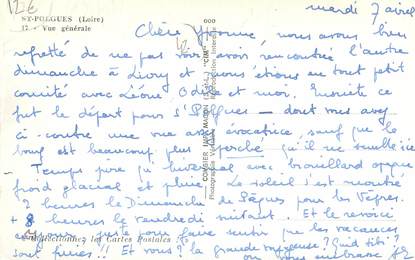 12€
mardi 7 avril
ST-POLGUES (Loire)
12 - Vue générale
Chère Yvonne, nous avons bien
regretté de ne pas vous avoir rencontré l'autre
dimanche à Livry et nous étions en tout petit
comité avec Léone, Od et moi. Ensuite ce
fut le départ pour St Polgues — dont vous avez
ci-contre une vue assez évocatrice, sauf que le
bourg est beaucoup plus perché qu'il ne semble ici
Temps pire qu'hivernal avec brouillard opaque
froid glacial et pluie. Le soleil s'est montré
2 heures le Dimanche de Pâques pour les Vêpres.
+ 8 heures le vendredi suivant. Et le revoici
juste pour faire sentir que les vacances
sont finies!! Et vous? la grande voyageuse? Quid
vous embrasse
Collectionnez les Cartes Postales
COMBIER IMP. MACON (S.-&-L.) "CIM"
Photographie Véritable